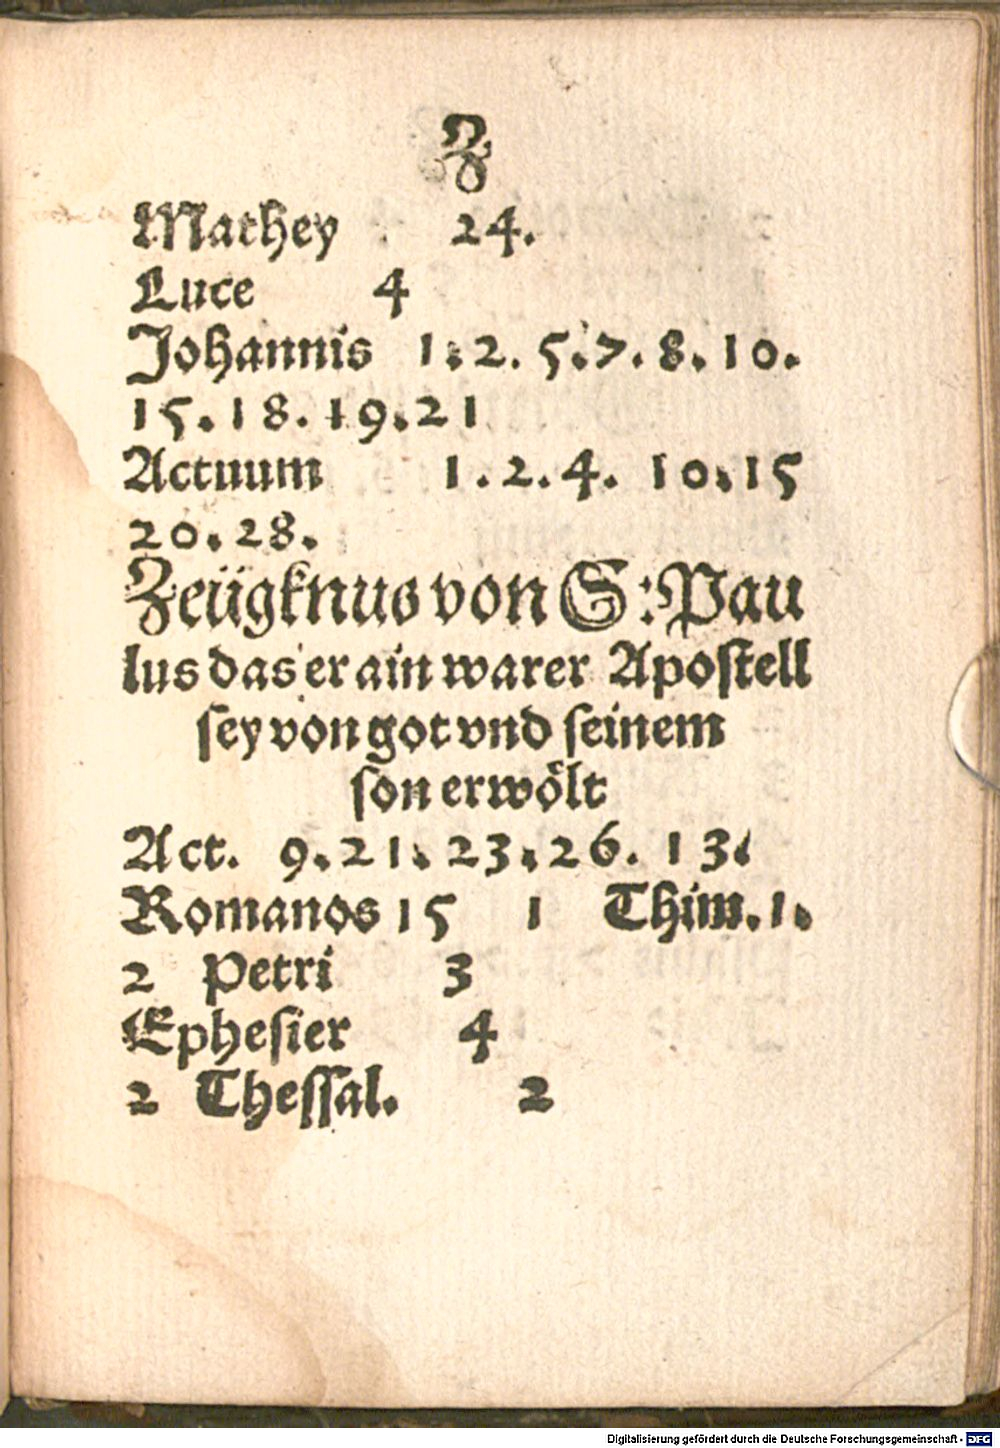 Z
Mathey 24.
Luce 4
Johannis 1.2.5.7.8.10.
15.18.19.21
Actuum 1.2.4. 10.15
20.28.
Zeügknus von S: Pau
lus das er ain warer Apostell
sey von got vnd seinem
son erwölt
Act. 9.21.23.26. 13.
Romanos 15 1 Thim.1.
2 Petri 3
Ephesier 4
2 Thessal. 2
Digitalisierung gefördert durch die Deutsche Forschungsgemeinschaft - DFG